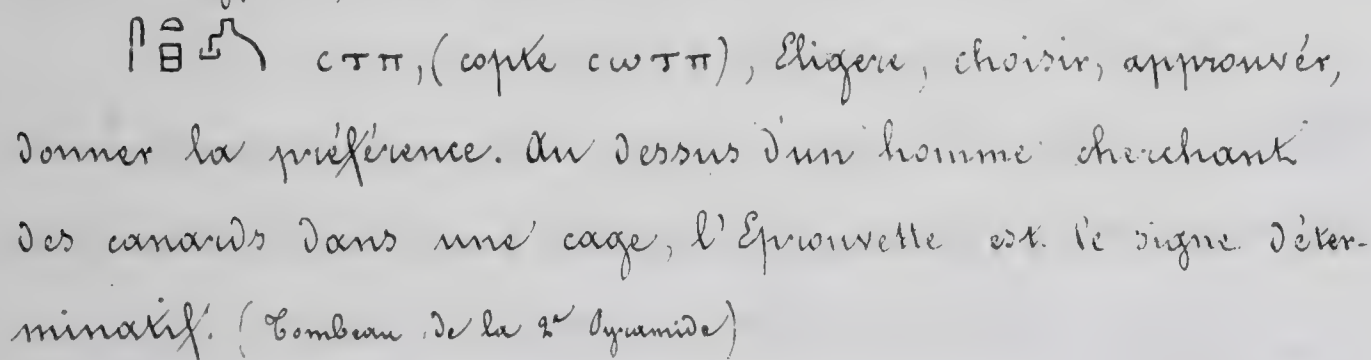 𓋴𓏏𓊪𓍉 ⲥⲧⲡ, (copte ⲥⲱⲧⲡ), Eligere, choisir, approuvér,
donner la préférence. Au dessus d'un homme cherchant
des canards dans une cage, l'Eprouvette est le signe déter-
minatif. (Tombeau de la 2e Pyramide)